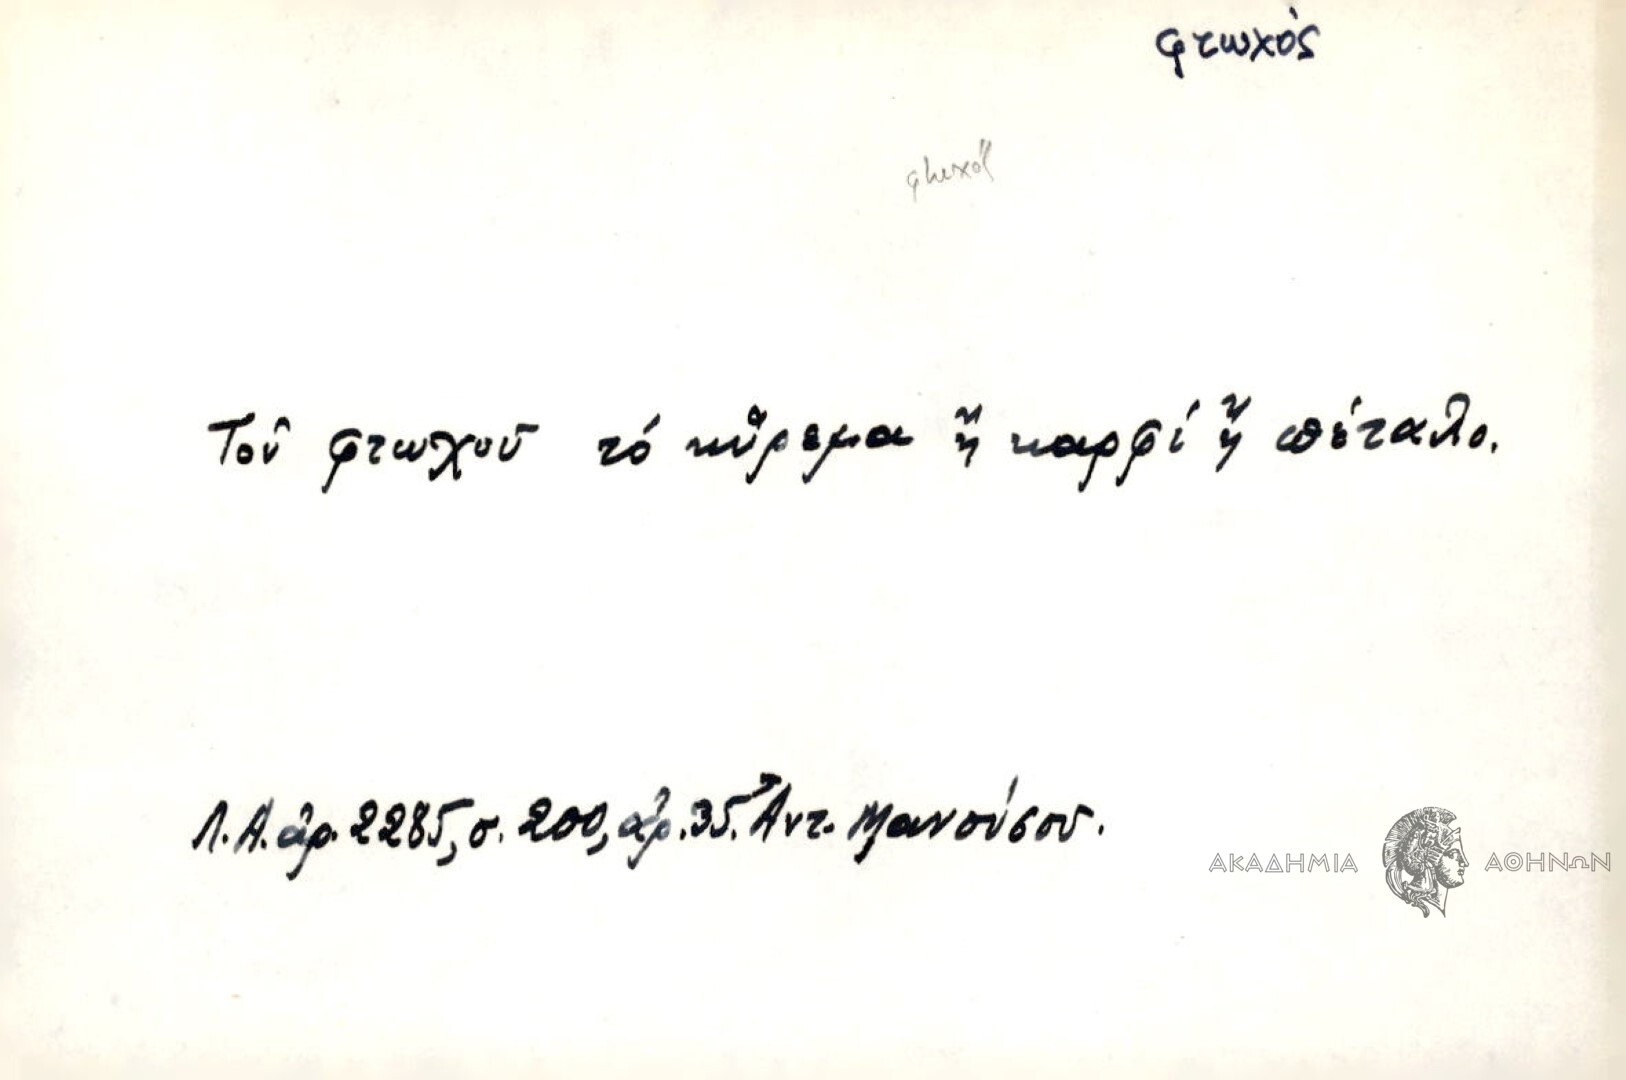 φτωχός
φτωχός
Τοῦ φτωχοῦ τό κὔρεμα ἤ καρφί ἤ πέταλο.
Λ.Α. ἀρ. 2285, σ. 200, ἀρ. 35. Ἀντ. Μανούσου.
ΑΚΑΔΗΜΙΑ ΑΘΗΝΩΝ